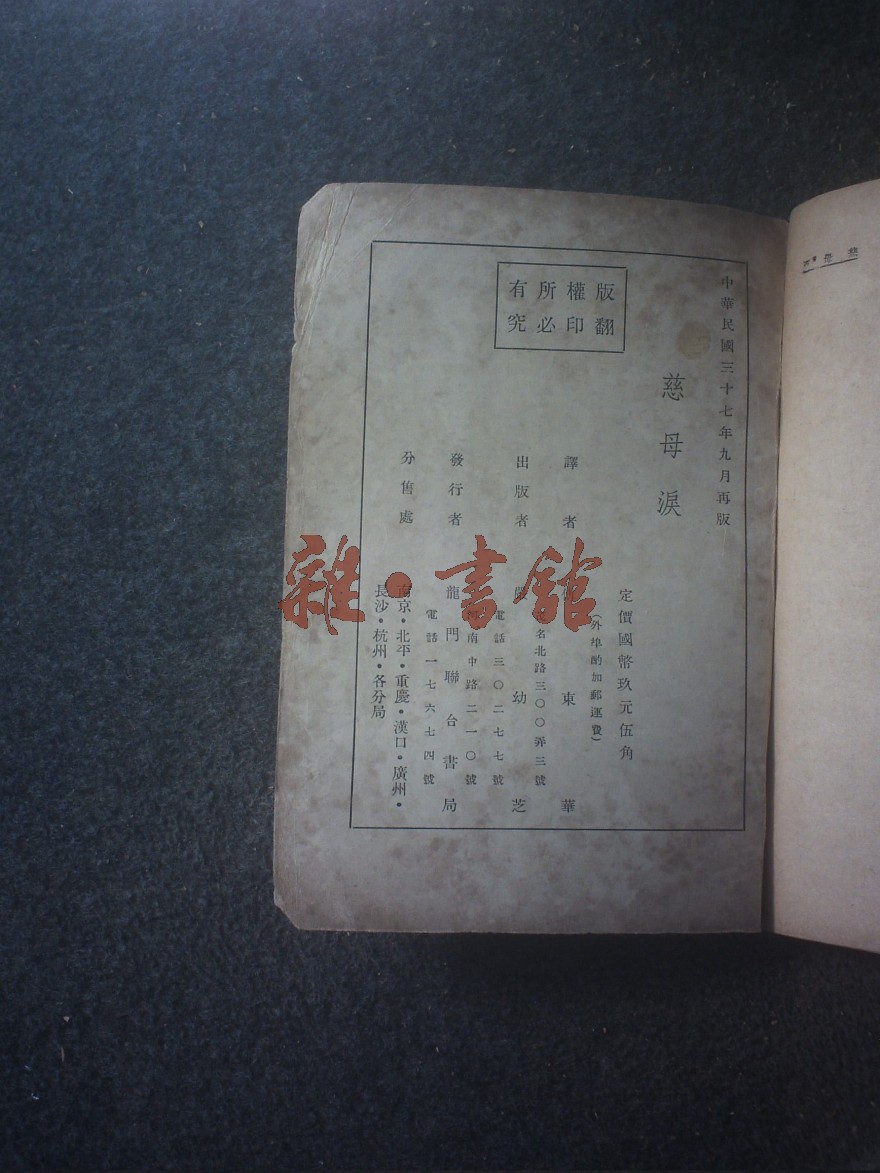 中華民國三十七年九月再版
慈母淚
版權所有
翻印必究
定價國幣玖元伍角
(外埠酌加郵運費)
譯者 東華
出版者 幼芝
名北路三〇〇弄三號
電話三〇二七七號
發行者 龍門聯合書局
河南中路二一〇號
電話一七六七四號
分售處 南京・北平・重慶・漢口・廣州・
長沙・杭州・各分局
雜・書館